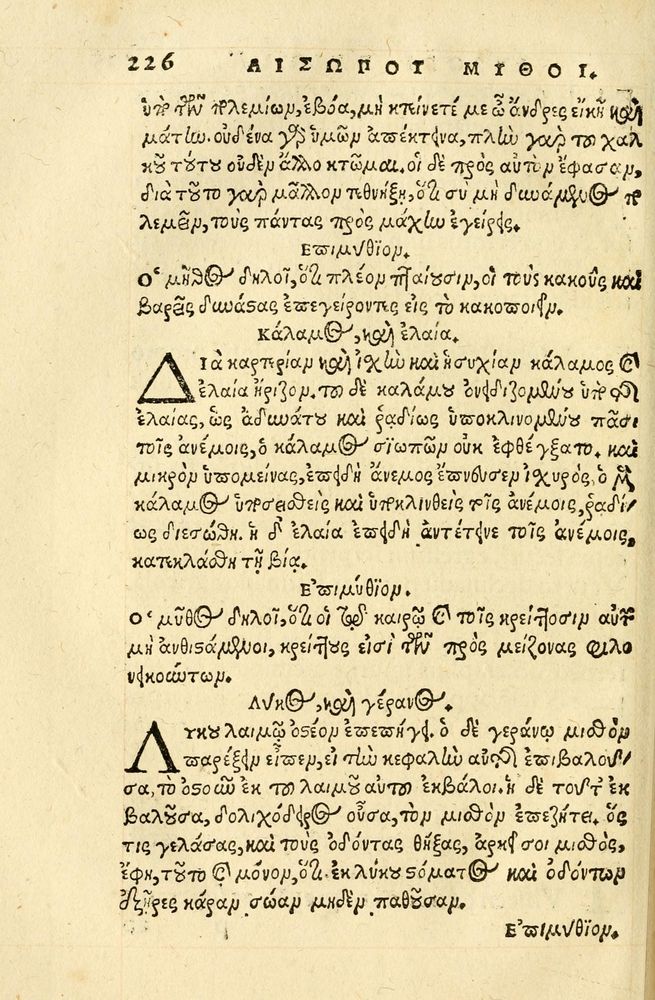 226 ΑΙΣΩΠΟΥ ΜΥΘΟΙ.
ὑπὸ τῶν πολεμίων, ἐβόα, μὴ κτείνετέ με ὦ ἄνδρες εἰκῆ καὶ
μάτην. οὐδένα γὰρ ὑμῶν ἀπέκτεινα, πλὴν γὰρ τοῦ χαλ
κοῦ τούτου οὐδὲν ἄλλο κτῶμαι. οἱ δὲ πρὸς αὐτὸν ἔφασαν,
διὰ τοῦτο γὰρ μᾶλλον τεθνήξῃ, ὅτι σὺ μὴ δυνάμενος πο
λεμεῖν, τοὺς πάντας πρὸς μάχην ἐγείρεις.
Επιμύθιον.
Ο μῦθος δηλοῖ, ὅτι πλέον πταίουσιν, οἱ τοὺς κακοὺς καὶ
βαρεῖς δυνάστας ἐπεγείροντες εἰς τὸ κακοποιεῖν.
Κάλαμος, καὶ ἐλαία.
ΔΙὰ καρτερίαν καὶ ἰσχὺν καὶ ἡσυχίαν κάλαμος καὶ
ἐλαία ἤριζον. τοῦ δὲ καλάμου ὀνειδιζομένου ὑπὸ τῆς
ἐλαίας, ὡς ἀδυνάτου καὶ ῥᾳδίως ὑποκλινομένου πᾶσι
τοῖς ἀνέμοις, ὁ κάλαμος σιωπῶν οὐκ ἐφθέγξατο. καὶ
μικρὸν ὑπομείνας, ἐπειδὴ ἄνεμος ἔπνευσεν ἰσχυρὸς, ὁ μὲν
κάλαμος ὑποσεισθεὶς καὶ ὑποκλινθεὶς τοῖς ἀνέμοις, ῥᾳδί
ως διεσώθη. ἡ δ᾽ ἐλαία ἐπειδὴ ἀντέτεινε τοῖς ἀνέμοις,
κατεκλάσθη τῇ βίᾳ.
Επιμύθιον.
Ο μῦθος δηλοῖ, ὅτι οἱ τῷ καιρῷ καὶ τοῖς κρείττοσιν αὐτῶν
μὴ ἀνθιστάμενοι, κρείττους εἰσὶ τῶν πρὸς μείζονας φιλο
νεικούντων.
Λύκος, καὶ γέρανος.
ΛΥκου λαιμῷ ὀστέον ἐπεπήγει. ὁ δὲ γεράνῳ μισθὸν
παρέξειν εἶπεν, εἰ τὴν κεφαλὴν αὐτῆς ἐπιβαλοῦ
σα, τὸ ὀστοῦν ἐκ τοῦ λαιμοῦ αὐτοῦ ἐκβάλοι. ἡ δὲ τοῦτ᾽ ἐκ
βαλοῦσα, δολιχόδειρος οὖσα, τὸν μισθὸν ἐπεζήτει. ὅς
τις γελάσας, καὶ τοὺς ὀδόντας θήξας, ἀρκεῖ σοι μισθὸς,
ἔφη, τοῦτο καὶ μόνον, ὅτι ἐκ λύκου στόματος καὶ ὀδόντων
ἐξῆρες κάραν σώαν μηδὲν παθοῦσαν.
Επιμύθιον.